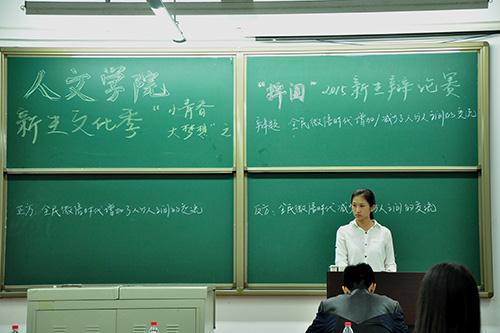 人文学院
新生文化季 "小青春
大梦想" 之
"择园" 2015新生辩论赛
辩题: 全民微信时代增加/减少了人与人之间的交流
正方: 全民微信时代增加了人与人之间的交流
反方: 全民微信时代减少了人与人之间的交流